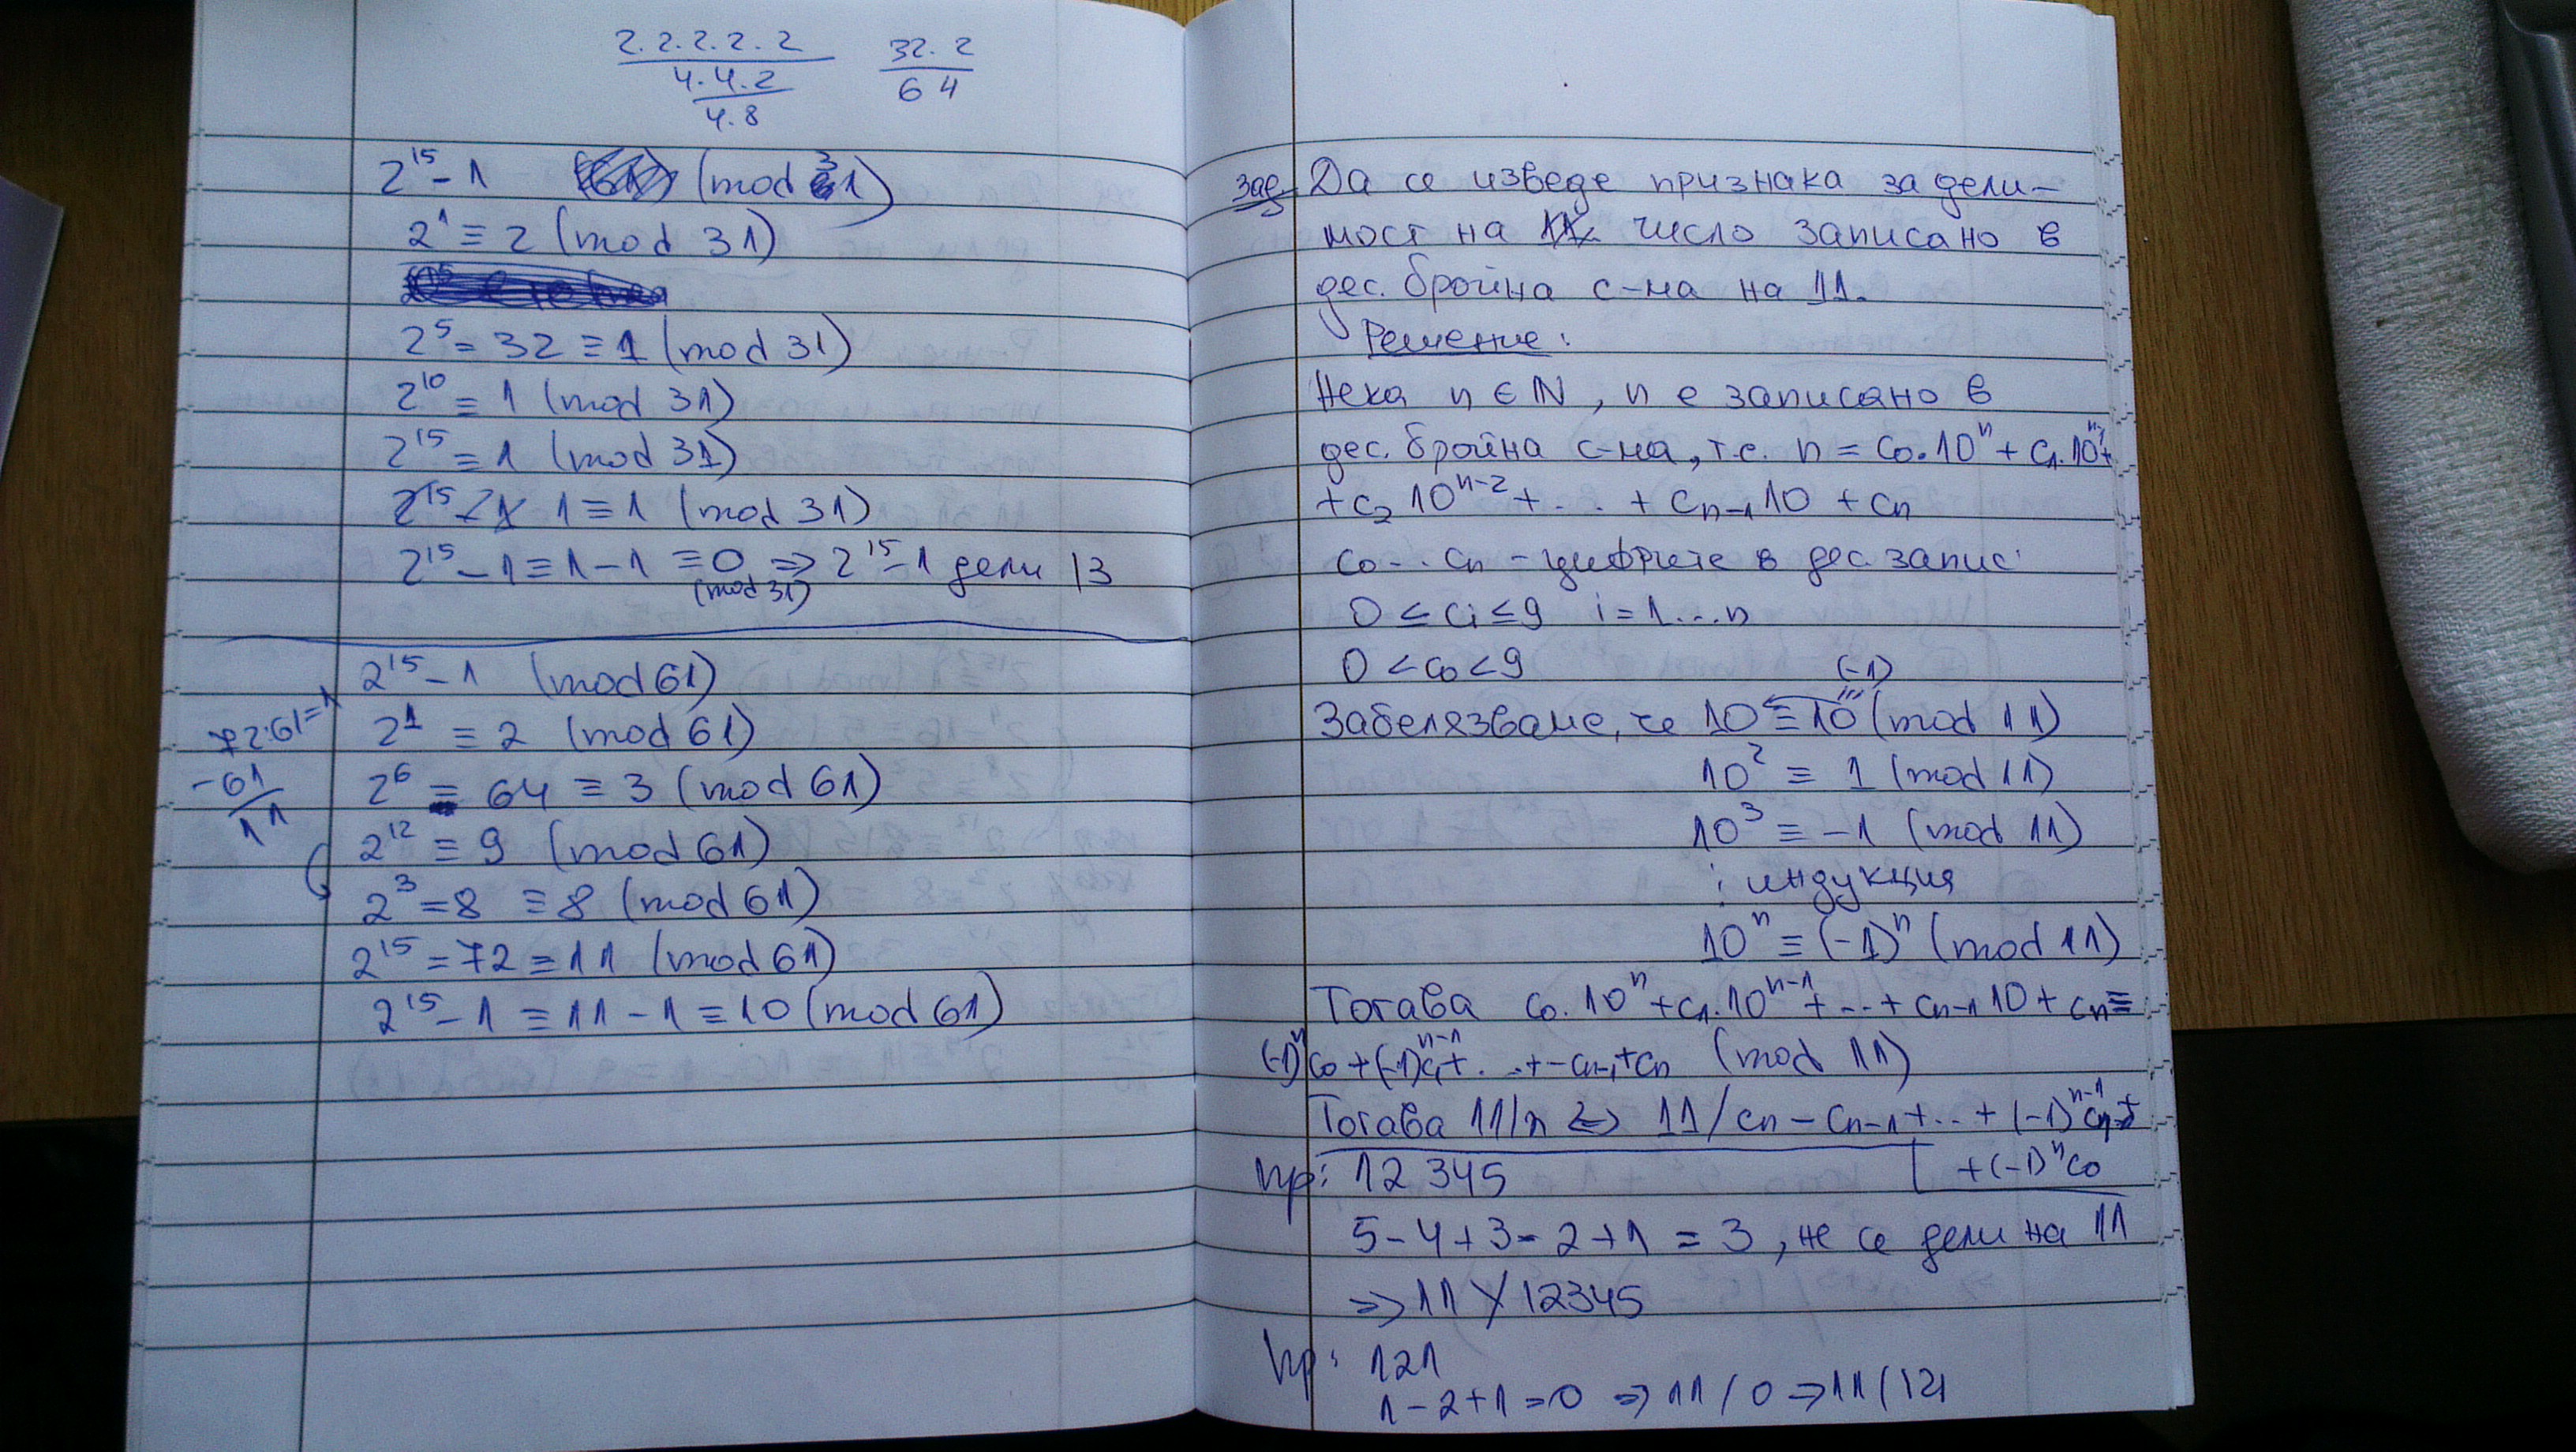 2.2.2.2.2
4.4.2
4.8
32.2
64
2¹⁵-1 (mod 31)
2¹ ≡ 2 (mod 31)
2⁵ = 32 ≡ 1 (mod 31)
2¹⁰ ≡ 1 (mod 31)
2¹⁵ ≡ 1 (mod 31)
1 ≡ 1 (mod 31)
2¹⁵-1 ≡ 1-1 ≡ 0 => 2¹⁵-1 дели 13
(mod 31)
2¹⁵-1 (mod 61)
2¹ ≡ 2 (mod 61)
2⁶ ≡ 64 ≡ 3 (mod 61)
2¹² ≡ 9 (mod 61)
2³ = 8 ≡ 8 (mod 61)
2¹⁵ = 72 ≡ 11 (mod 61)
2¹⁵-1 ≡ 11-1 ≡ 10 (mod 61)
72:61=1
-61
11
зад. Да се изведе признака за дели-
мост на число записано в
дес. бройна с-ма на 11.
Решение:
Нека n ∈ N, n е записано в
дес. бройна с-ма, т.е. n = c₀.10ⁿ + c₁.10ⁿ⁻¹+
+ c₂ 10ⁿ⁻² + ... + cₙ₋₁10 + cₙ
c₀...cₙ - цифрите в дес. запис
0 ≤ cᵢ ≤ 9 i = 1...n
0 < c₀ < 9
(-1)
Забелязваме, че 10 ≡ 10 (mod 11)
10² ≡ 1 (mod 11)
10³ ≡ -1 (mod 11)
⋮ индукция
10ⁿ ≡ (-1)ⁿ (mod 11)
Тогава c₀.10ⁿ + c₁.10ⁿ⁻¹ + ... + cₙ₋₁10 + cₙ ≡
(-1)ⁿc₀ + (-1)ⁿ⁻¹c₁ + ... + -cₙ₋₁ + cₙ (mod 11)
Тогава 11/n <=> 11/cₙ - cₙ₋₁ + ... + (-1)ⁿ⁻¹c₁+
+(-1)ⁿc₀
пр: 12345
5-4+3-2+1 = 3, не се дели на 11
=> 11 ∤ 12345
пр: 121
1-2+1=0 => 11/0 => 11/121